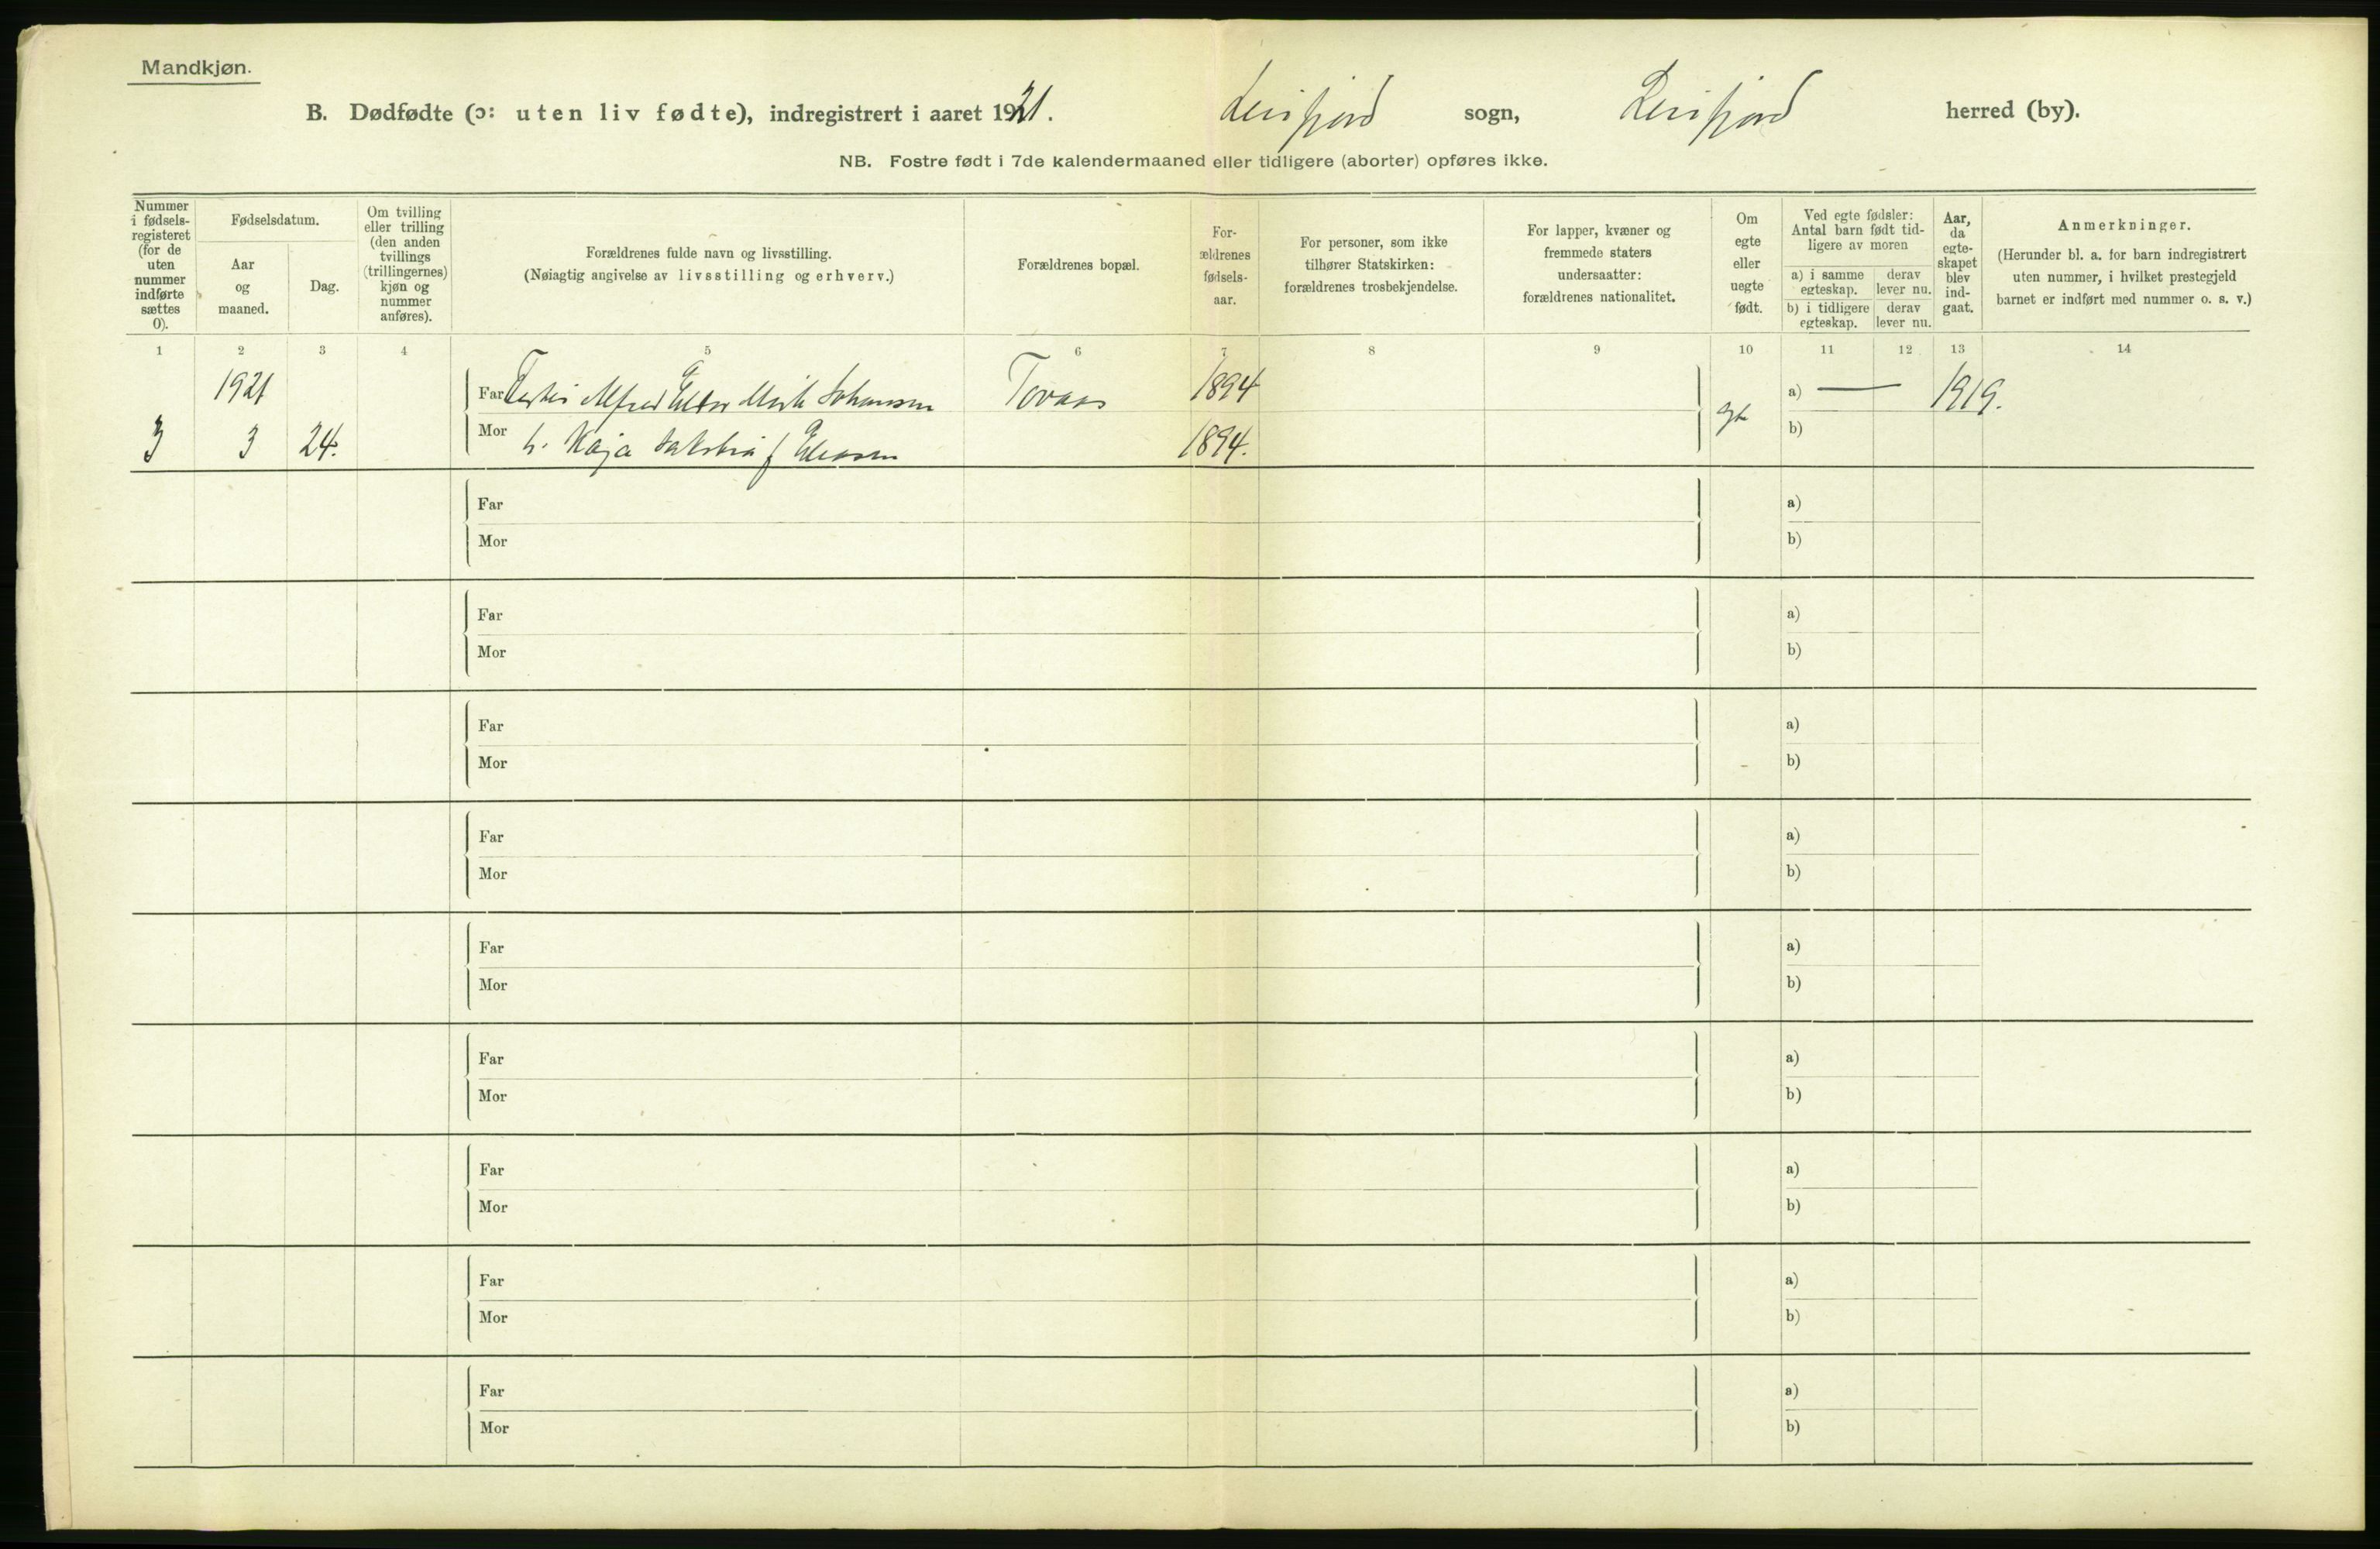 Mandkjøn.
B. Dødfødte (ɔ: uten liv fødte), indregistrert i aaret 1921. Leirfjord sogn, Leirfjord herred (by).
NB. Fostre født i 7de kalendermaaned eller tidligere (aborter) opføres ikke.
Nummer i fødsels-registeret (for de uten nummer indførte sættes 0).
Fødselsdatum.
Aar og maaned.
Dag.
Om tvilling eller trilling (den anden tvillings (trillingernes) kjøn og nummer anføres).
Forældrenes fulde navn og livsstilling.
(Nøiagtig angivelse av livsstilling og erhverv.)
Forældrenes bopæl.
For-ældrenes fødsels-aar.
For personer, som ikke tilhører Statskirken: forældrenes trosbekjendelse.
For lapper, kvæner og fremmede staters undersaatter: forældrenes nationalitet.
Om egte eller uegte født.
Ved egte fødsler: Antal barn født tid-ligere av moren
a) i samme egteskap.
derav lever nu.
b) i tidligere egteskap.
derav lever nu.
Aar, da egte-skapet blev ind-gaat.
Anmerkninger.
(Herunder bl. a. for barn indregistrert uten nummer, i hvilket prestegjeld barnet er indført med nummer o. s. v.)
1 2 3 4 5 6 7 8 9 10 11 12 13 14
1921 Far Alfred Johansen 1894 a) — 1919.
3 3 24. Mor h. Kaja f. Eliasen 1894. egte b)
Far a)
Mor b)
Far a)
Mor b)
Far a)
Mor b)
Far a)
Mor b)
Far a)
Mor b)
Far a)
Mor b)
Far a)
Mor b)
Far a)
Mor b)
Far a)
Mor b)